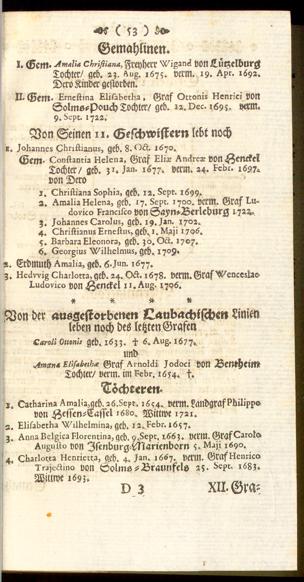 ( 53 )
Gemahlinen.
I. Gem. Amalia Christiana, Freyherr Wigand von Lützelburg
Tochter/ geb. 23. Aug. 1675. verm. 19. Apr. 1692.
Dero Kinder gestorben.
II. Gem. Ernestina Elisabetha, Graf Ottonis Henrici von
Solms-Pouch Tochter/ geb. 12. Dec. 1695. verm.
9. Sept. 1722.
Von Seinen 11. Geschwistern lebt noch
1. Johannes Christianus, geb. 8. Oct. 1670.
Gem. Constantia Helena, Graf Eliæ Andreæ von Henckel
Tochter/ geb. 31. Jan. 1677. verm. 24. Febr. 1697.
von Dero
1. Christiana Sophia, geb. 12. Sept. 1699.
2. Amalia Helena, geb. 17. Sept. 1700. verm. Graf Lu-
dovico Francisco von Sayn-Berleburg 1722.
3. Johannes Carolus, geb. 19. Jan. 1702.
4. Christianus Ernestus, geb. 1. Maji 1706.
5. Barbara Eleonora, geb. 30. Oct. 1707.
6. Georgius Wilhelmus, geb. 1709.
2. Erdmuth Amalia, geb. 6. Jun. 1677.
3. Hedvvig Charlotta, geb. 24. Oct. 1678. verm. Graf Wenceslao
Ludovico von Henckel 11. Aug. 1706.
* * *
Von der ausgestorbenen Laubachischen Linien
leben noch des letzten Grafen
Caroli Ottonis geb. 1633. † 6. Aug. 1677.
und
Amœnæ Elisabethæ Graf Arnoldi Jodoci von Bentheim
Tochter/ verm. im Febr. 1654. †.
Töchteren.
1. Catharina Amalia, geb. 26. Sept. 1654. verm. Landgraf Philippo
von Hessen-Cassel 1680. Wittwe 1721.
2. Elisabetha Wilhelmina, geb. 12. Febr. 1657.
3. Anna Belgica Florentina, geb. 9. Sept. 1663. verm. Graf Carolo
Augusto von Isenburg-Marienborn 5. Maji 1690.
4. Charlotta Henrietta, geb. 4. Jan. 1667. verm. Graf Henrico
Trajectino von Solms-Braunfels 25. Sept. 1683.
Wittwe 1693.
D 3 XII. Gra-